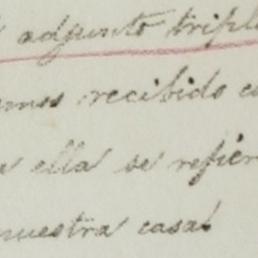 adjunto tripl
emos recibido e
a ella se refier
nuestra casa!